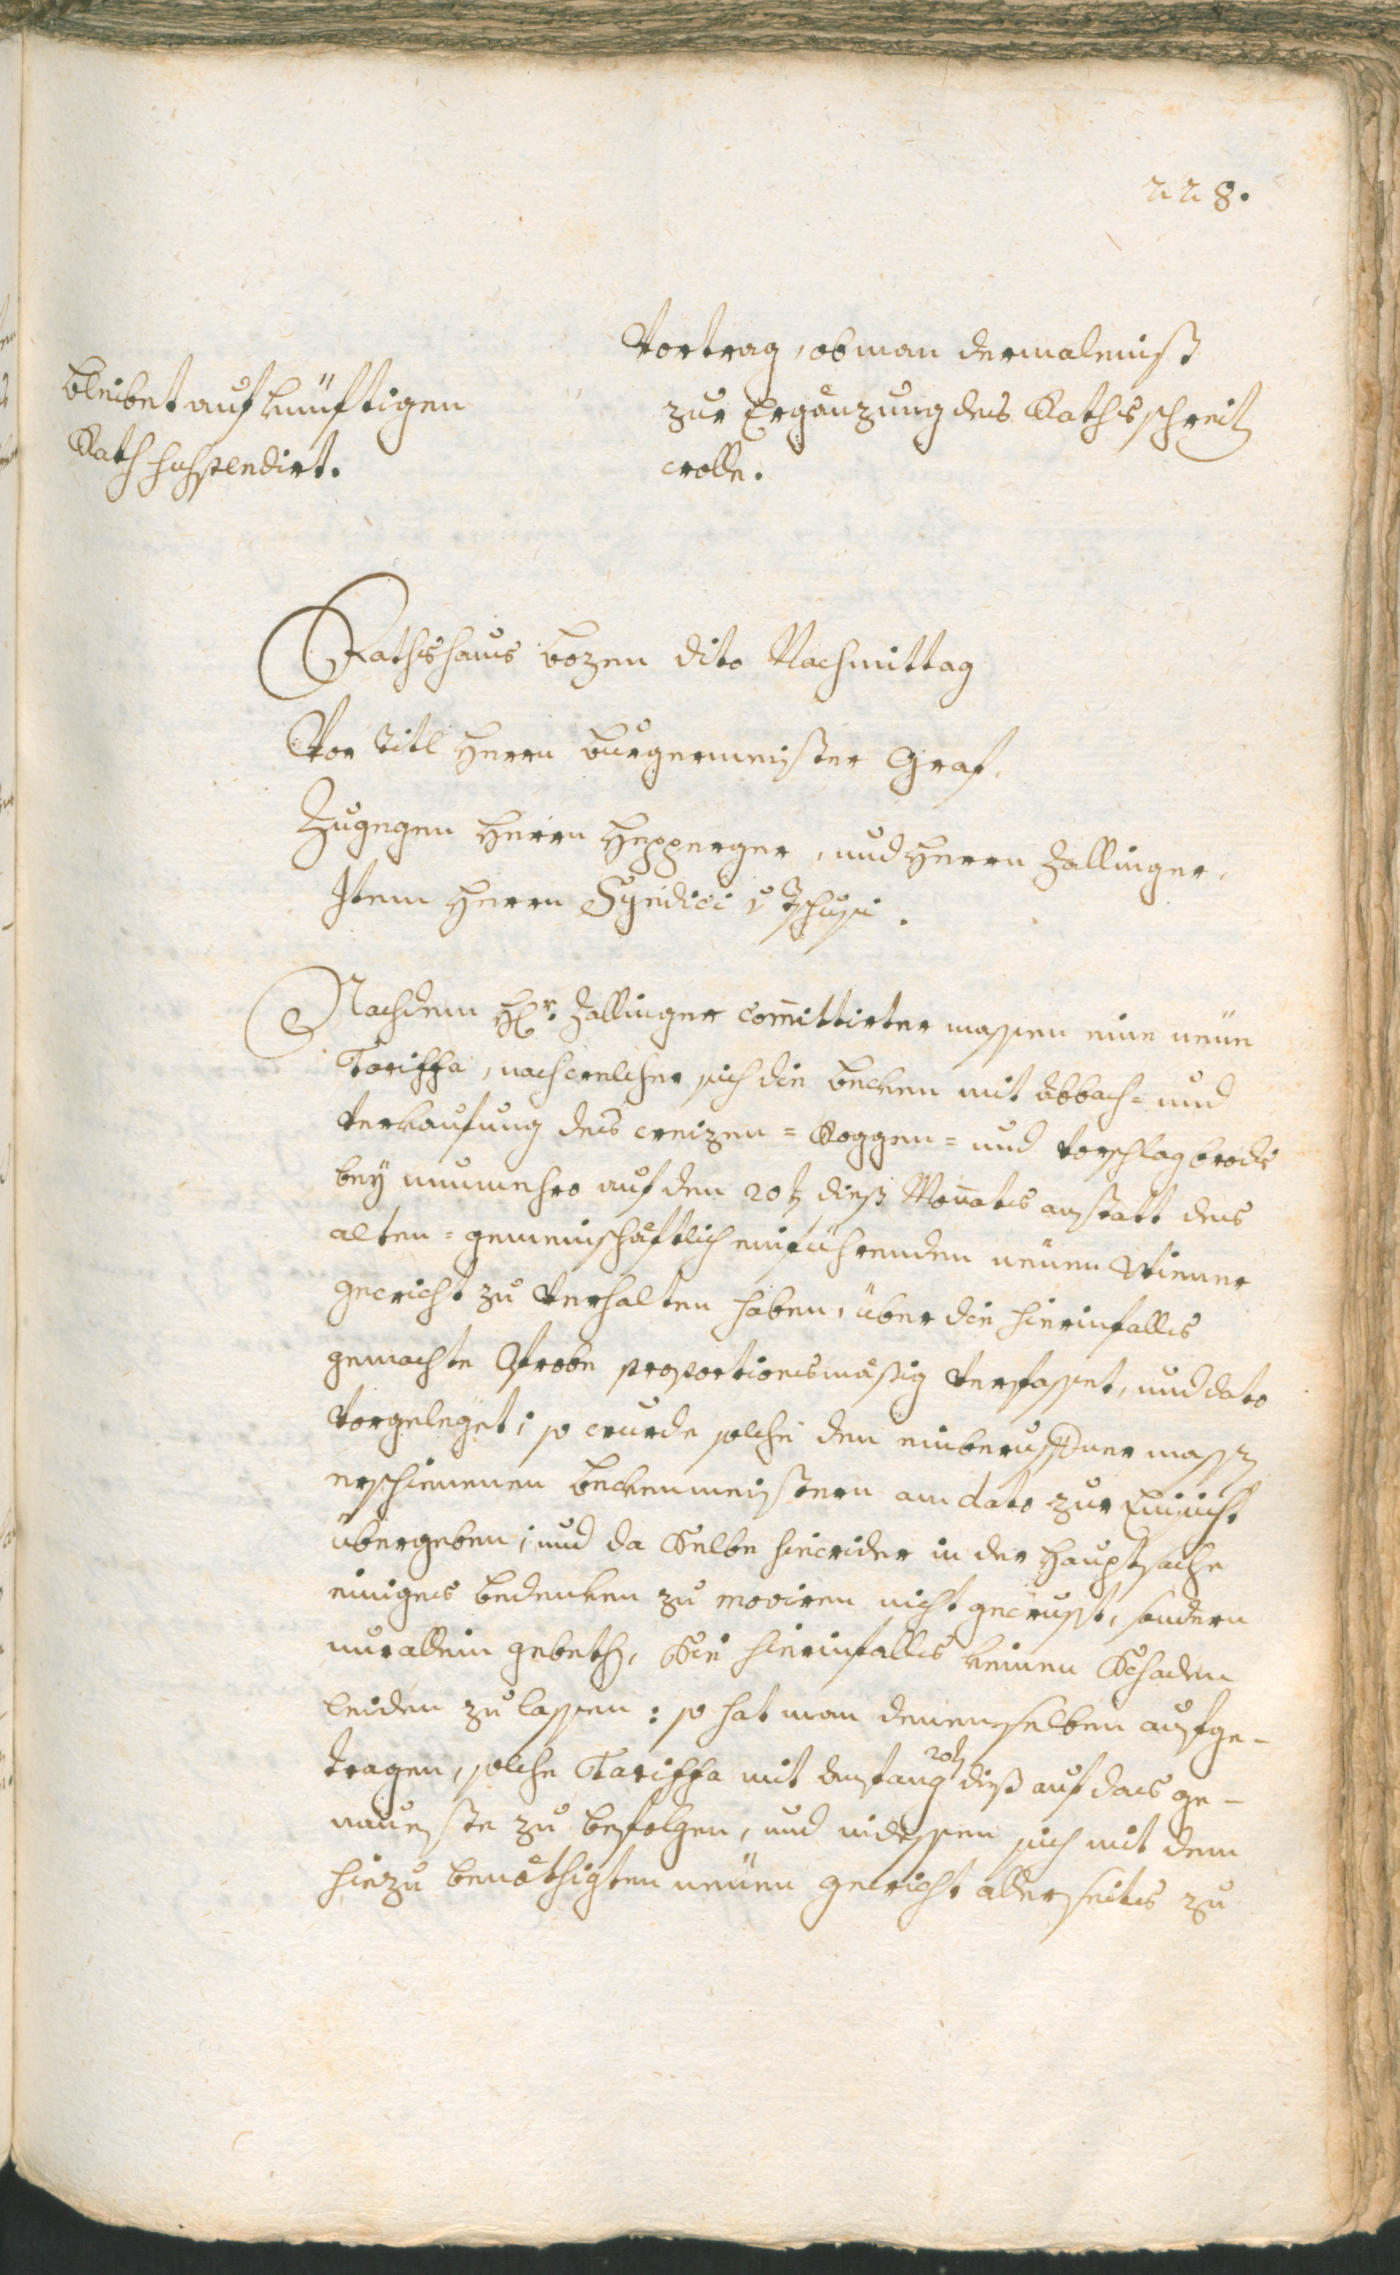 228.
Vortrag, ob man dermaleinst
zur Ergänzung des Raths schreiten
wolle.
bleibet auf künftigen
Rath suspendirt.
Rathshaus bozen dito Nachmittag
Vor Titl Herrn burgermeister Graf.
Zugegen Herrn Hepperger, und Herrn Zallinger,
Item Herrn Syndici v Tschusi.
Nachdem Hr. Zallinger committirter massen eine neüe
Tariffa, nach welcher sich die becken mit abbach= und
Verkaufung des weizen= Roggen= und Vorschlagbrods
bey nunmehro auf den 20ten dieß Monats anstatt des
alten= gemeinschäftlich einführenden neüen Wienner
gewicht zu Verhalten haben, über die hierinfalls
gemachte Probe proportionsmäßig Verfasset, und dato
Vorgeleget; so wurde solche den einberuffener massen
erschienenen beckenmeistern am dato zur Einsicht
übergeben; und da Selbe hiewider in der Hauptsache
einiges bedenken zu moviren nicht gewusst, sondern
nur allein gebethen, Sie hierinfalls keinen Schaden
leiden zu lassen: so hat man denenselben aufge-
tragen, solche Tariffa mit Anfang 20ten dieß auf das ge-
naueste zu befolgen, und indessen sich mit dem
hiezu benöthigten neüen gewicht allerseits zu